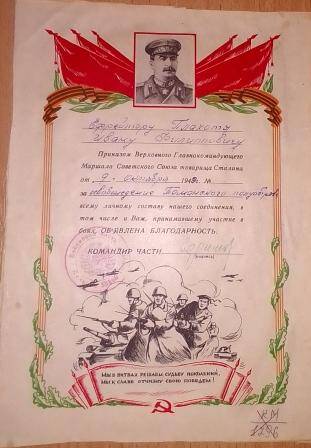 Ефрейтору Плахоте
Ивану Филипповичу
Приказом Верховного Главнокомандующего
Маршала Советского Союза товарища Сталина
от 9 октября 194 г. №
за освобождение Таманского полуострова
всему личному составу нашего соединения, в
том числе и Вам, принимавшему участие в
боях, ОБ'ЯВЛЕНА БЛАГОДАРНОСТЬ.
КОМАНДИР ЧАСТИ
(подпись)
МЫ В БИТВАХ РЕШАЕМ СУДЬБУ ПОКОЛЕНИЙ,
МЫ К СЛАВЕ ОТЧИЗНУ СВОЮ ПОВЕДЕМ!
КМ
1296